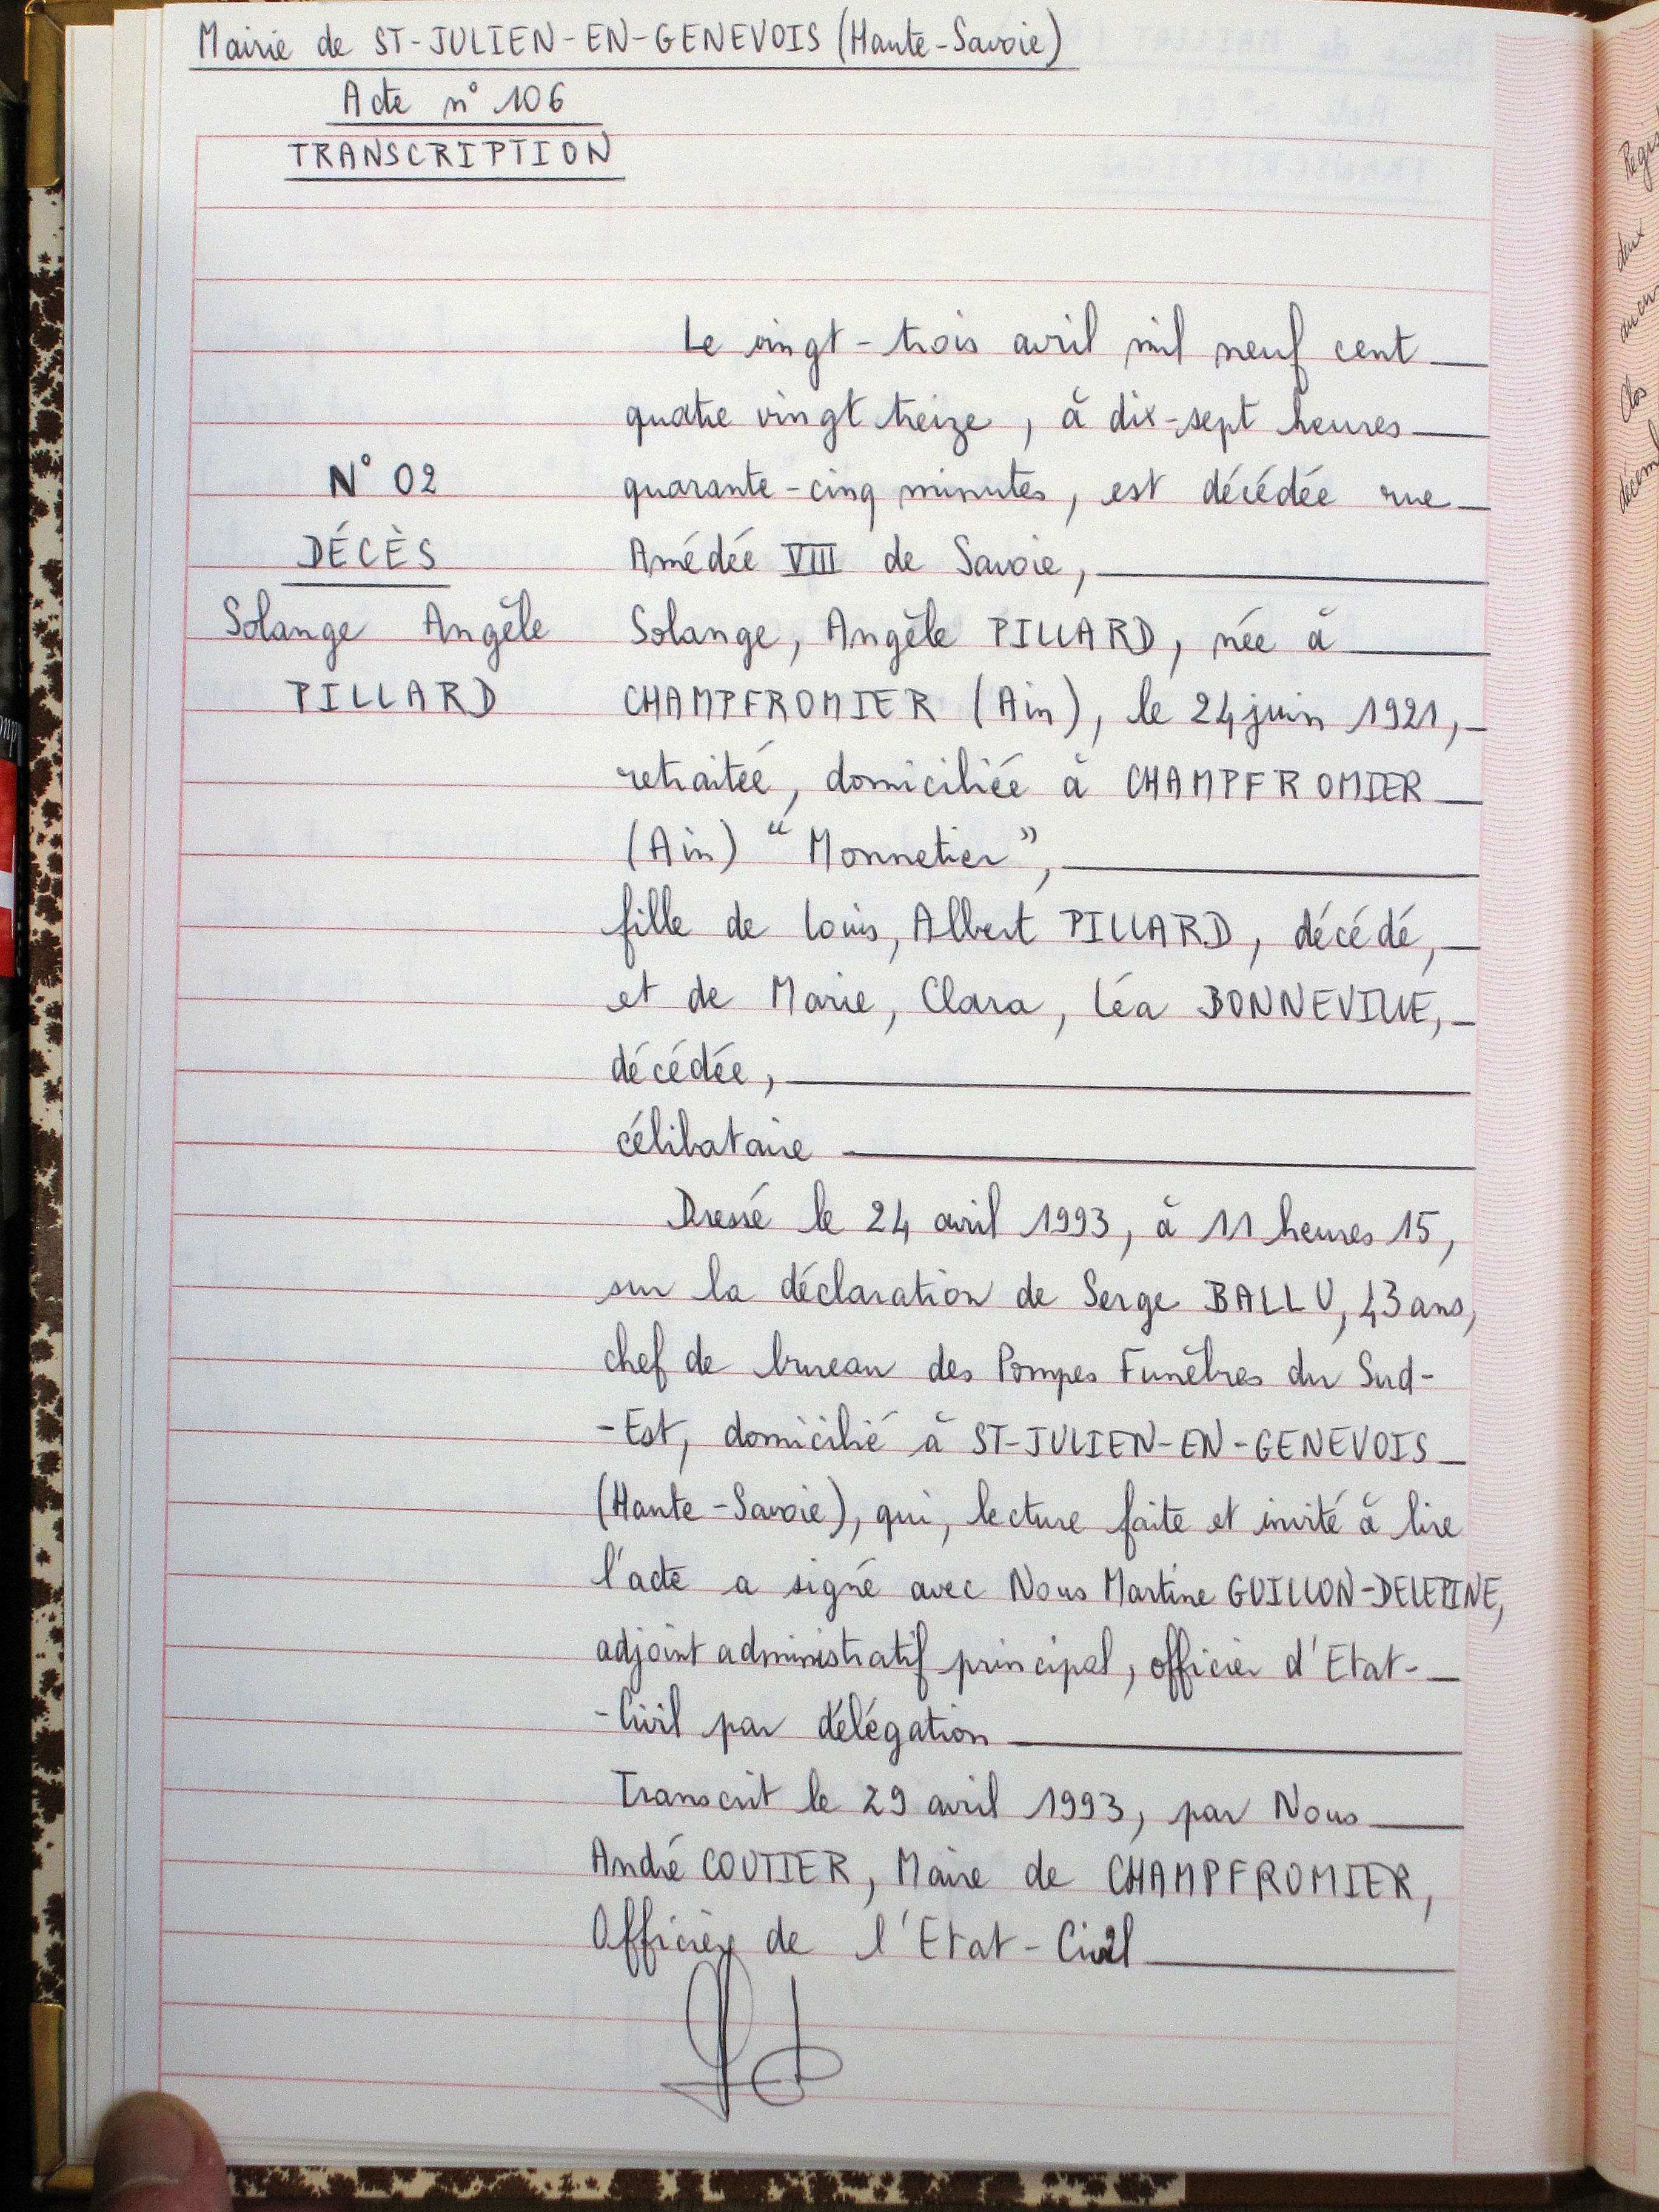 Mairie de ST-JULIEN-EN-GENEVOIS (Haute-Savoie)
Acte n° 106
TRANSCRIPTION
N° 02
DÉCÈS
Solange Angèle
PILLARD
Le vingt-trois avril mil neuf cent
quatre vingt treize, à dix-sept heures
quarante-cinq minutes, est décédée rue
Amédée VIII de Savoie,
Solange, Angèle PILLARD, née à
CHAMPFROMIER (Ain), le 24 juin 1921,
retraitée, domiciliée à CHAMPFROMIER
(Ain) "Monnetier",
fille de Louis, Albert PILLARD, décédé,
et de Marie, Clara, Léa BONNEVILLE,
décédée,
célibataire
Dressé le 24 avril 1993, à 11 heures 15,
sur la déclaration de Serge BALLU, 43 ans,
chef de bureau des Pompes Funèbres du Sud-
-Est, domicilié à ST-JULIEN-EN-GENEVOIS
(Haute-Savoie), qui, lecture faite et invité à lire
l'acte a signé avec Nous Martine GUILLON-DELEPINE,
adjoint administratif principal, officier d'Etat-
-Civil par délégation
Transcrit le 29 avril 1993, par Nous
André COUTIER, Maire de CHAMPFROMIER,
Officier de l'Etat-Civil
deux
Clos